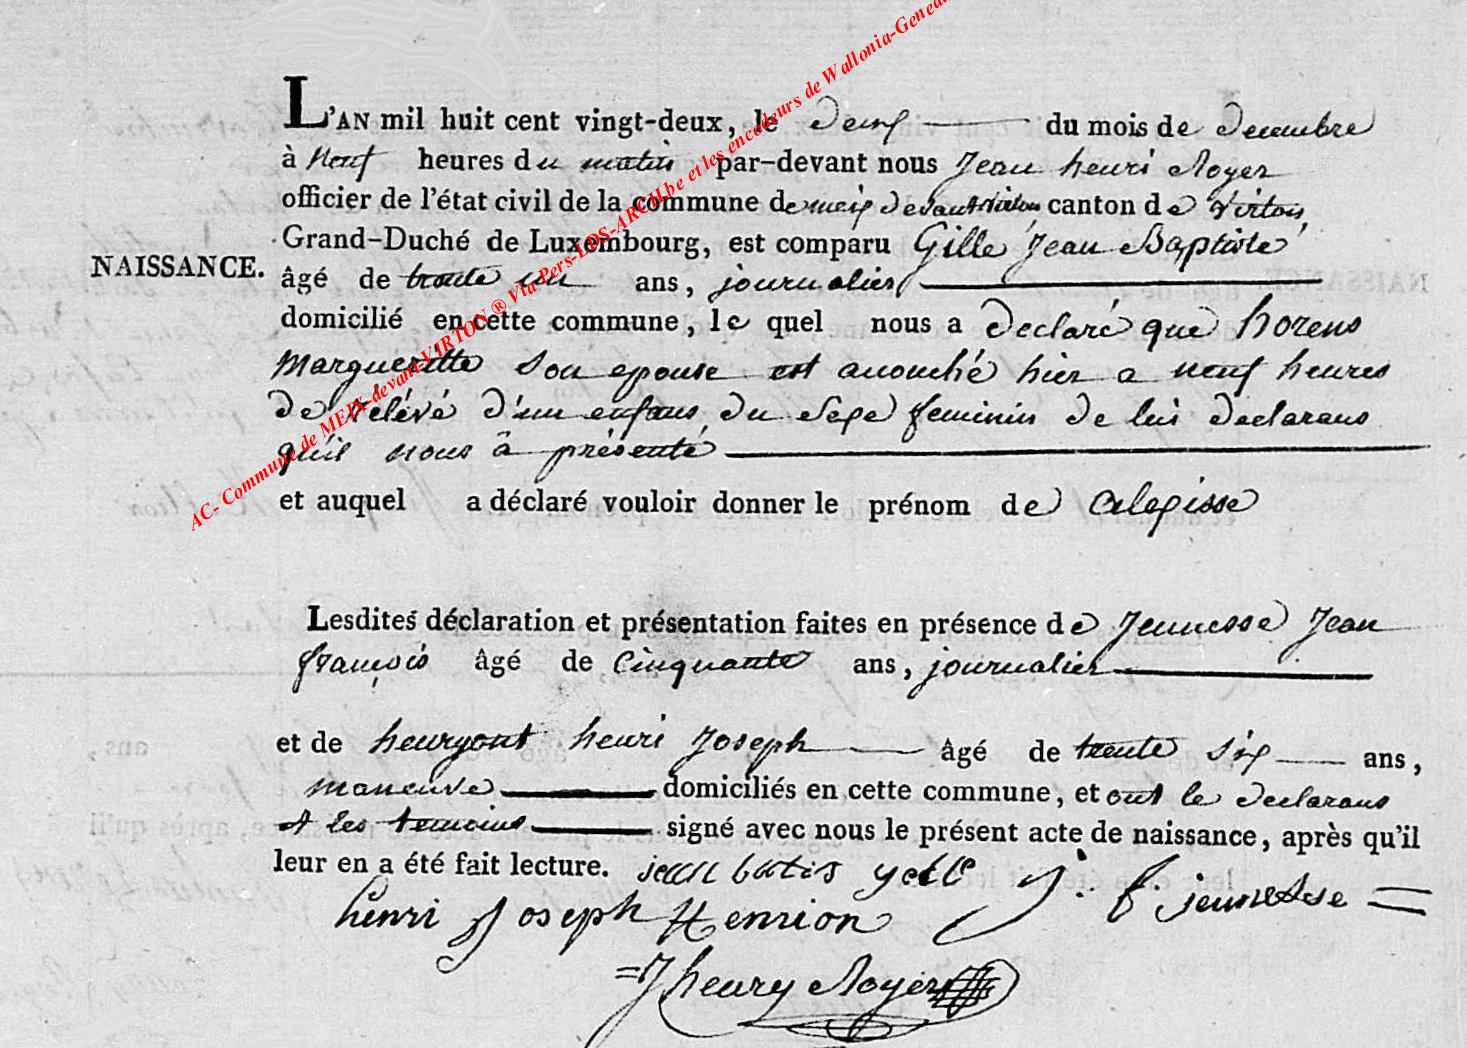 AC- Commune de MEIX-devant-VIRTON ® Via Pers-LDS-ARCH.be et les encodeurs de Wallonia-Geneal
L'AN mil huit cent vingt-deux, le deux du mois de decembre
à Neuf heures du matin par-devant nous Jean henri Royer
officier de l'état civil de la commune de meix devant virton canton de virton
Grand-Duché de Luxembourg, est comparu Gille Jean Baptiste
NAISSANCE.
âgé de trente un ans, journalier
domicilié en cette commune, le quel nous a declaré que horens
Margueritte son epouse est acouché hier a neuf heures
de rélévé d'un enfans du sexe feminin de lui declarans
qu'il nous à présenté
et auquel a déclaré vouloir donner le prénom de
Lesdites déclaration et présentation faites en présence de Jeunesse Jean
françois âgé de cinquante ans, journalier
et de henryont henri Joseph âgé de trente six ans,
maneuve domiciliés en cette commune, et ont le declarans
et les temoins signé avec nous le présent acte de naissance, après qu'il
leur en a été fait lecture. jean batis J. f. jeunesse
henri Joseph Henrion
J henry Royer